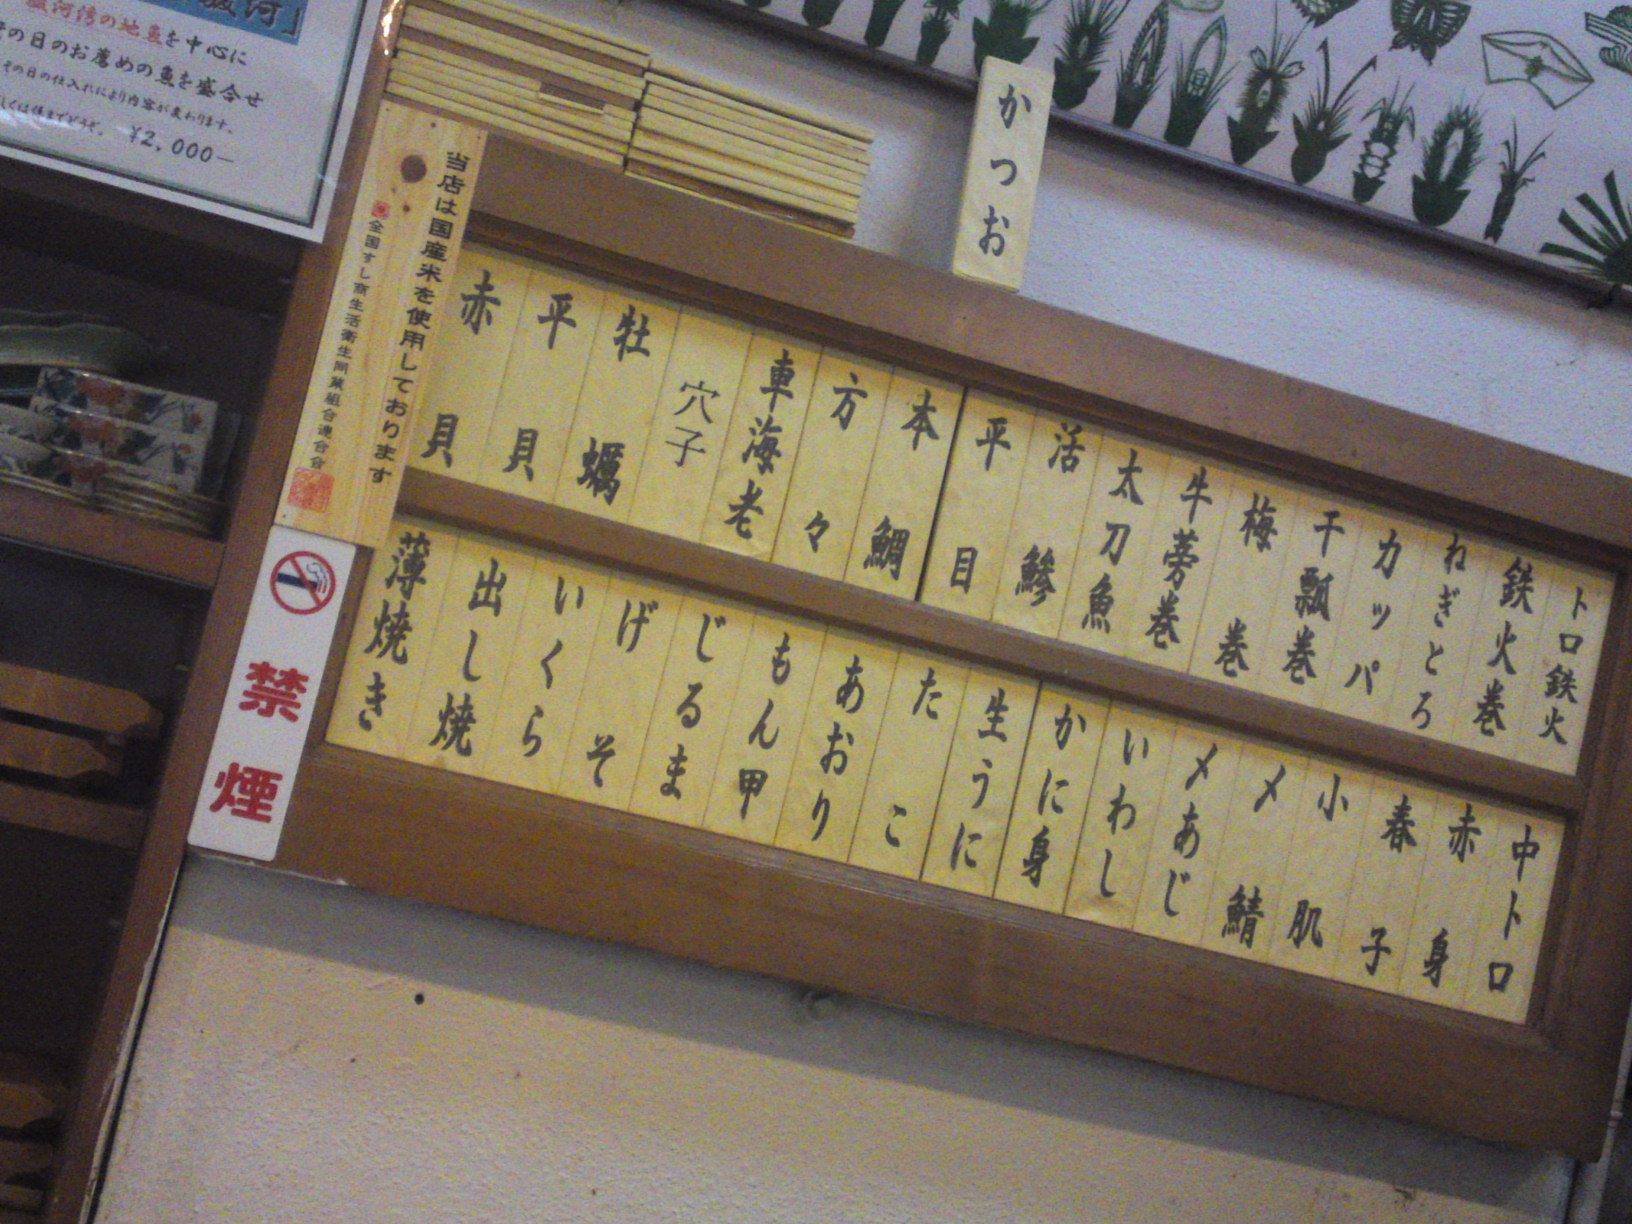 駿河」
駿河湾の地魚を中心に
その日のお薦めの魚を盛合せ
その日の仕入れにより内容が変わります。
しくは係までどうぞ。 ¥2,000—
かつお
当店は国産米を使用しております
全国すし商生活衛生同業組合連合会
禁煙
トロ鉄火
鉄火巻
ねぎとろ
カッパ
干瓢巻
梅巻
牛蒡巻
太刀魚
活鯵
平目
本鯛
方々
車海老
穴子
牡蠣
平貝
赤貝
中トロ
赤身
春子
小肌
〆鯖
〆あじ
いわし
かに身
生うに
たこ
あおり
もん甲
じるま
げそ
いくら
出し焼
薄焼き